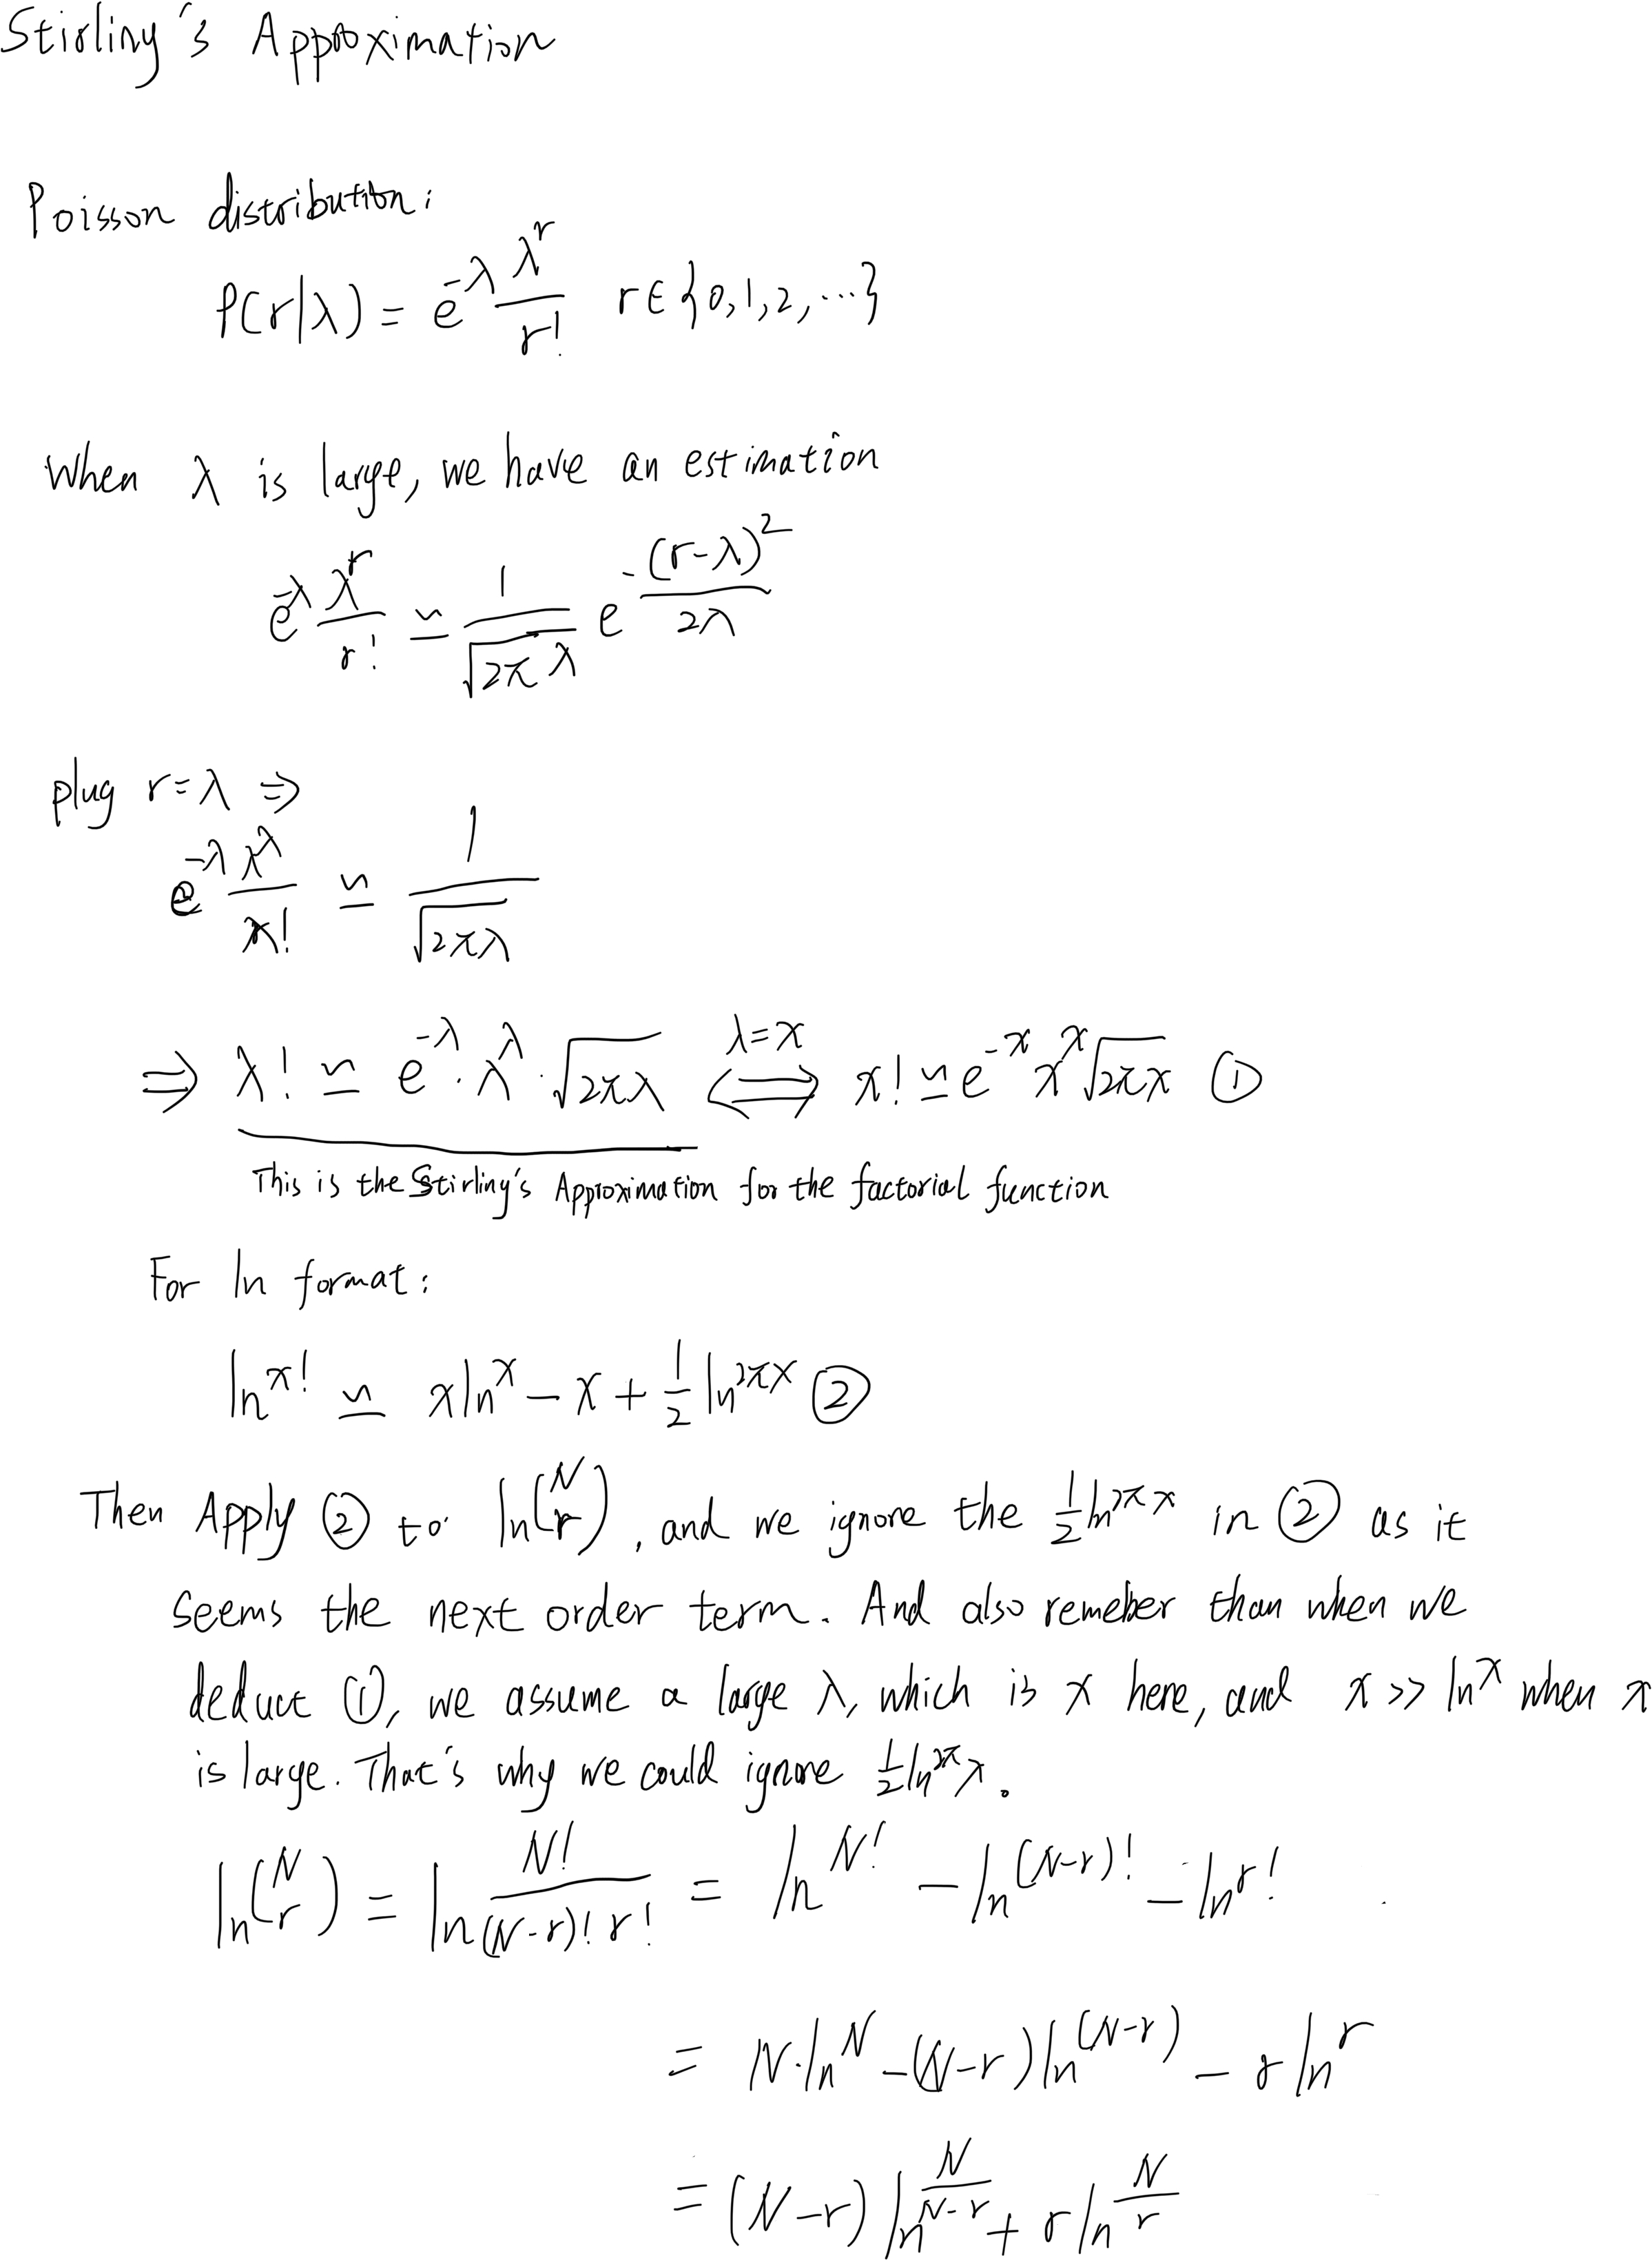 Stirliny's Approximation
Poisson distribution:
P(r|λ) = e^{-λ} \frac{λ^r}{r!} r∈{0,1,2,...}
When λ is large, we have an estimation
e^{-λ} \frac{λ^r}{r!} ≃ \frac{1}{\sqrt{2πλ}} e^{-\frac{(r-λ)^2}{2λ}}
plug r=λ ⇒
e^{-λ} \frac{λ^λ}{λ!} ≃ \frac{1}{\sqrt{2πλ}}
⇒ λ! ≃ e^{-λ} · λ^λ · \sqrt{2πλ} \overset{λ=x}{⟺} x! ≃ e^{-x} x^x \sqrt{2πx} ①
This is the Stirliny's Approximation for the factorial function
For ln format:
ln^{x!} ≃ xln^x − x + \frac{1}{2} ln^{2πx} ②
Then Apply ② to ln\binom{N}{r}, and we ignore the \frac{1}{2}ln^{2πx} in ② as it
seems the next order term. And also remeber than when we
deduct ①, we assume a large λ, which is x here, and x >> ln^x when x
is large. That's why we could ignore \frac{1}{2}ln^{2π}x.
ln\binom{N}{r} = ln\frac{N!}{(N-r)! r!} = ln^{N!} − ln^{(N-r)!} − ln^{r!}
= N·ln^N − (N-r)ln^{(N-r)} − r ln^r
= (N-r) ln^{\frac{N}{N-r}} + r ln^{\frac{N}{r}}